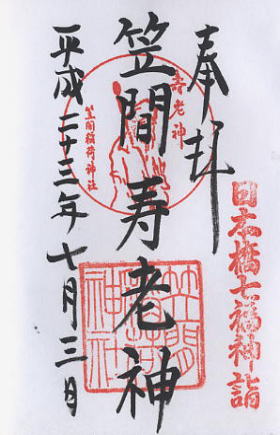 奉拝
日本橋七福神詣
壽老神
笠間寿老神
笠間稲荷神社
平成二十三年十月三日